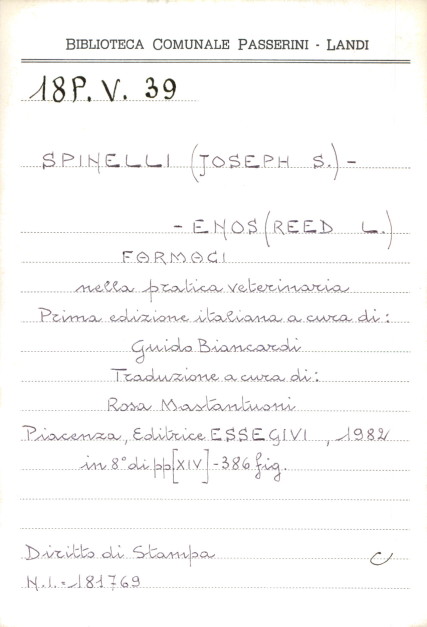 BIBLIOTECA COMUNALE PASSERINI - LANDI
18P. V. 39
SPINELLI (JOSEPH S.) -
- ENOS (REED L.)
FARMACI
nella pratica veterinaria
Prima edizione italiana a cura di:
Guido Biancardi
Traduzione a cura di:
Rosa Mastantuoni
Piacenza, Editrice ESSEGIVI, 1982
in 8° di pp [XIV] - 386 fig.
Diritto di Stampa C
N.I. = 181769